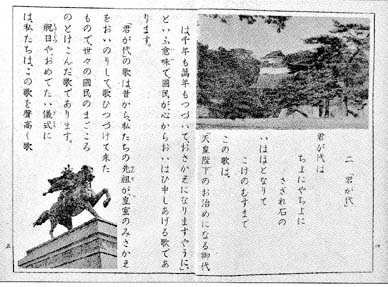 二 「君が代」
君が代は
ちよにやちよに
さざれ石の
いはほとなりて
こけのむすまて
この歌は、
天皇陛下のお治めになる御代
は、千年も萬年もつづいておさかえになりますやうに」
といふ意味で、國民が、心からおいはひ申しあげる歌であ
ります。
「君が代」の歌は、昔から、私たちの先祖が、皇室のみさかえ
をおいのりして、歌ひつづけて來た
もので、世々の國民のまごころ
のとけこんだ歌であります。
祝日や、おめでたい儀式に
は、私たちは、この歌を聲高く歌